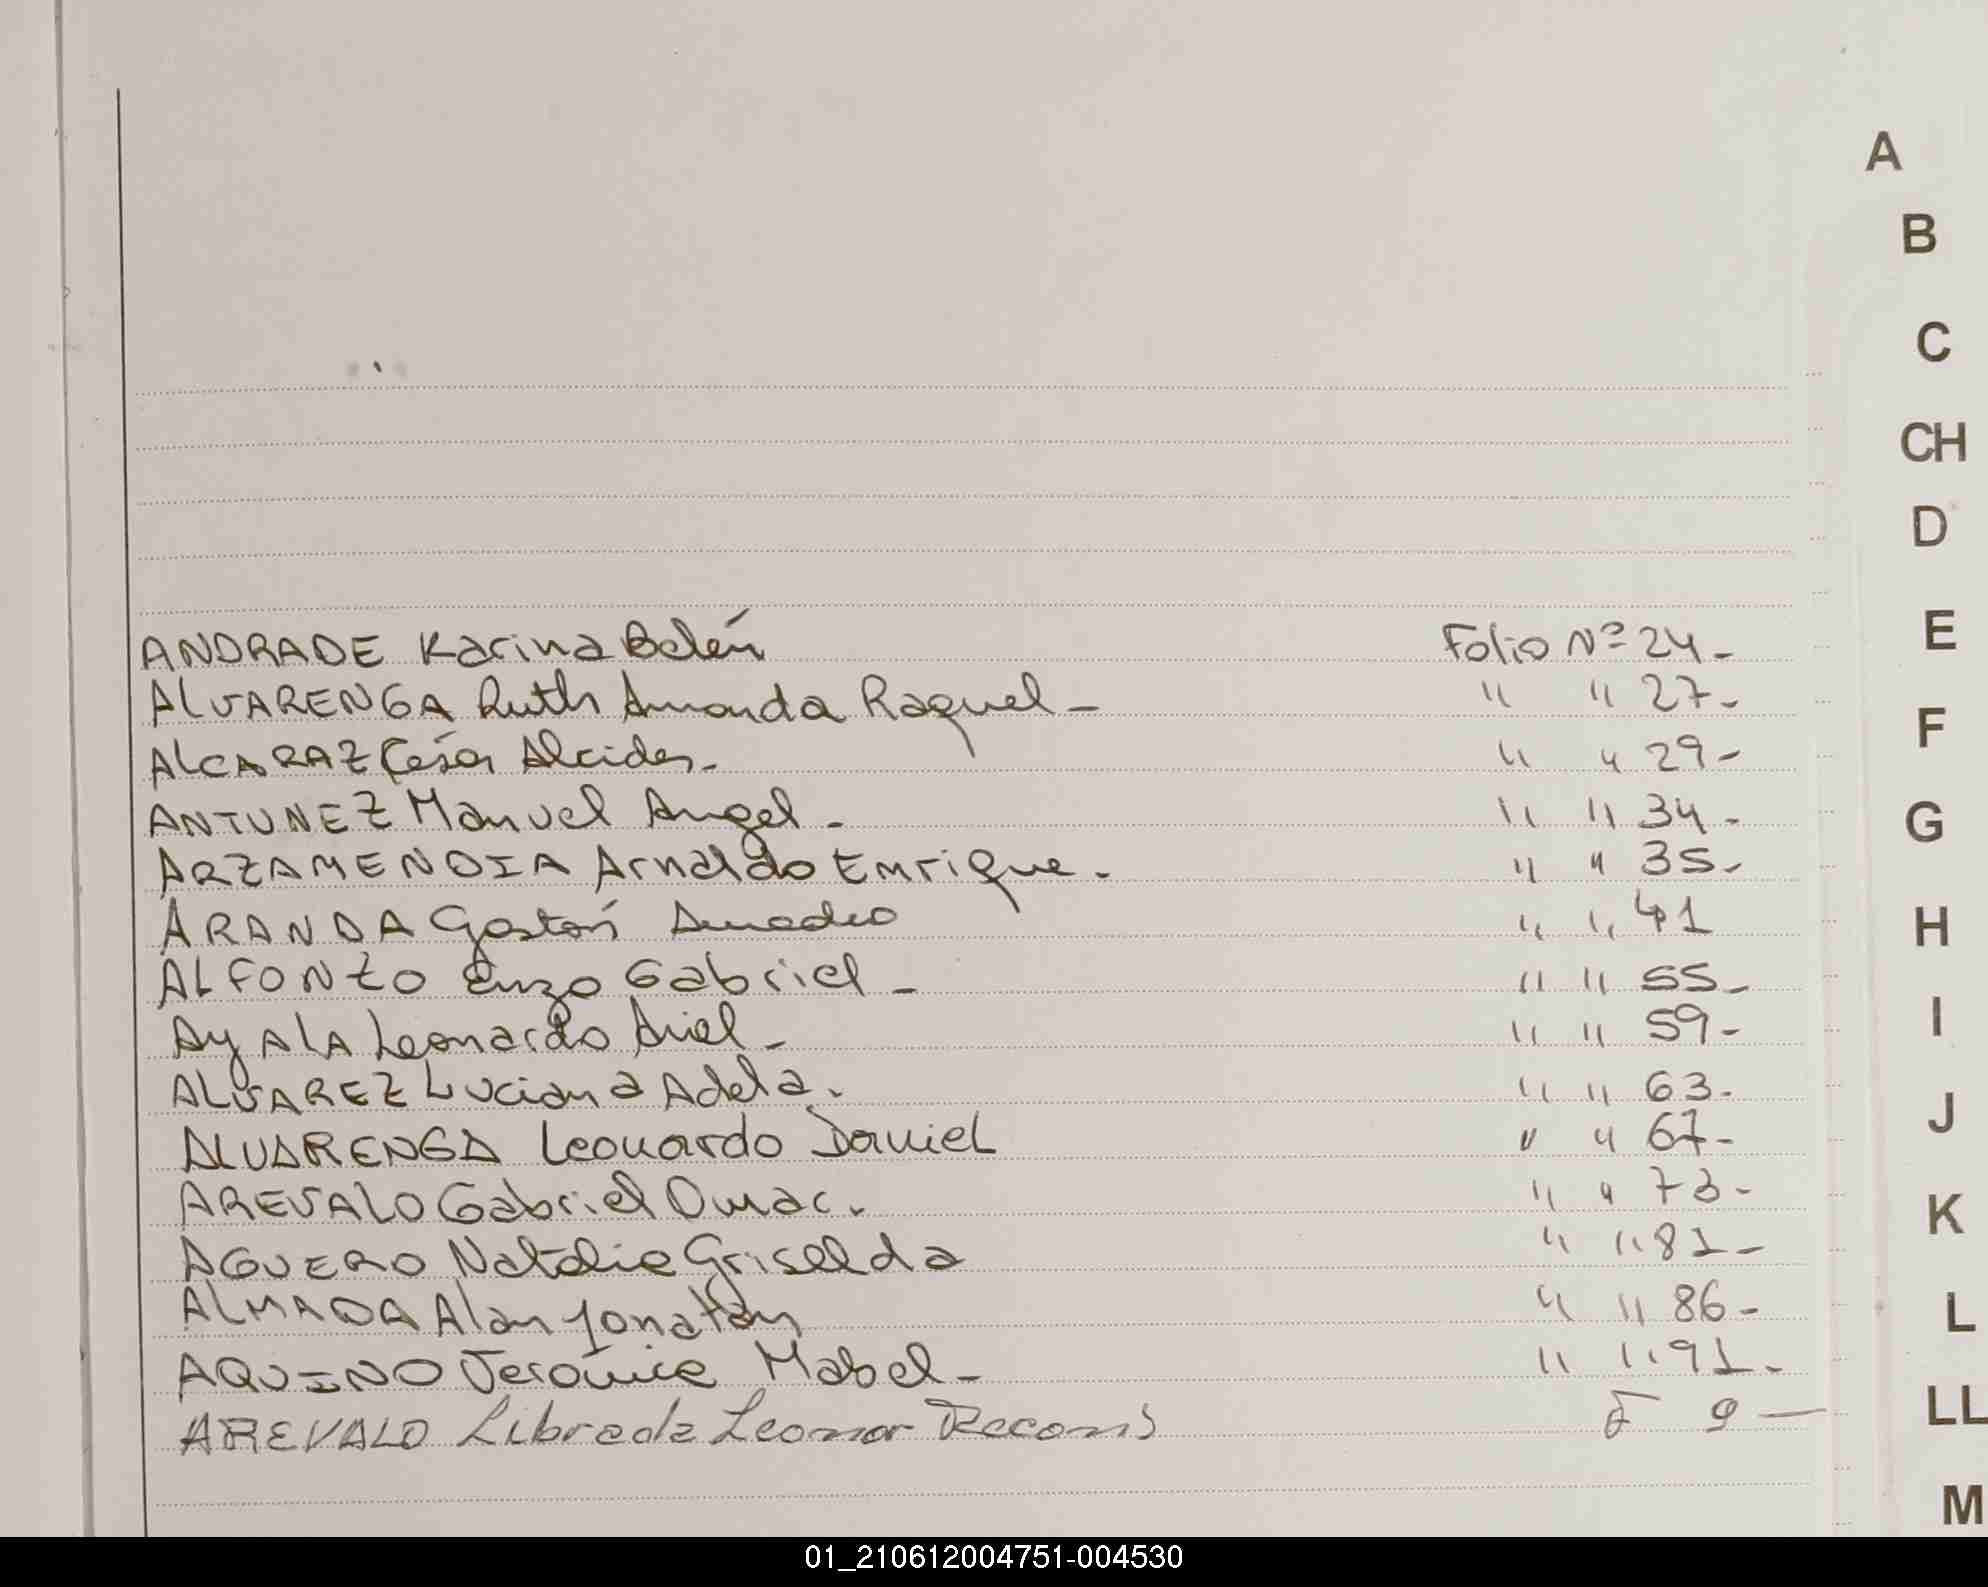 A
B
C
CH
D
E
F
G
H
I
J
K
L
LL
M
ANDRADE Karina Belén Folio Nº 24-
ALVARENGA Ruth Amanda Raquel - " " 27-
ALCARAZ César Alcides. " " 29-
ANTUNEZ Manuel Angel - " " 34-
ARZAMENDIA Arnaldo Enrique. " " 35-
ARANDA Gastón Amadeo " " 41
ALFONZO Enzo Gabriel - " " 55-
AyALA Leonardo Ariel - " " 59-
ALVAREZ Luciana Adela. " " 63-
ALVARENGA Leonardo Daniel " " 67-
AREVALO Gabriel Omar. " " 73-
AGUERO Natalia Griselda " " 81-
ALMADA Alan Jonatán " " 86-
AQUINO Verónica Mabel - " " 91-
AREVALO Librada Leonor F 9 —
01_210612004751-004530